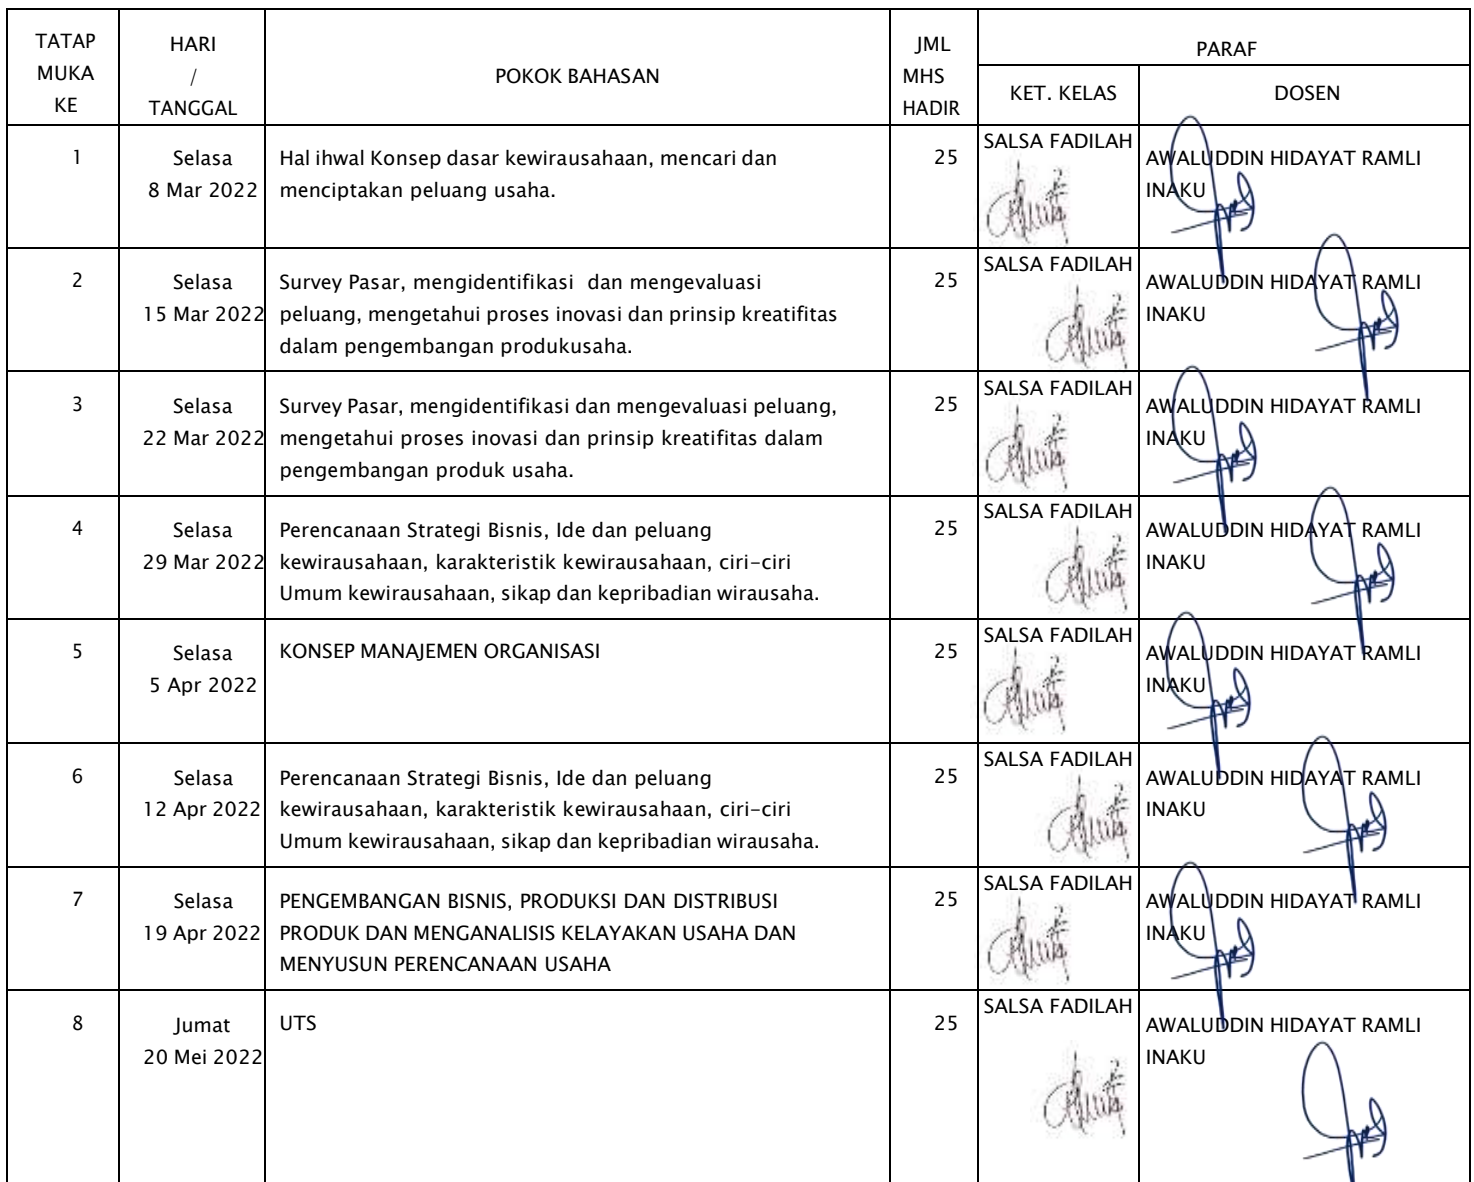 TATAP
MUKA
KE
HARI
/
TANGGAL
POKOK BAHASAN
JML
MHS
HADIR
PARAF
KET. KELAS
DOSEN
1
Selasa
8 Mar 2022
Hal ihwal Konsep dasar kewirausahaan, mencari dan
menciptakan peluang usaha.
25
SALSA FADILAH
AWALUDDIN HIDAYAT RAMLI
INAKU
2
Selasa
15 Mar 2022
Survey Pasar, mengidentifikasi  dan mengevaluasi
peluang, mengetahui proses inovasi dan prinsip kreatifitas
dalam pengembangan produkusaha.
25
SALSA FADILAH
AWALUDDIN HIDAYAT RAMLI
INAKU
3
Selasa
22 Mar 2022
Survey Pasar, mengidentifikasi dan mengevaluasi peluang,
mengetahui proses inovasi dan prinsip kreatifitas dalam
pengembangan produk usaha.
25
SALSA FADILAH
AWALUDDIN HIDAYAT RAMLI
INAKU
4
Selasa
29 Mar 2022
Perencanaan Strategi Bisnis, Ide dan peluang
kewirausahaan, karakteristik kewirausahaan, ciri-ciri
Umum kewirausahaan, sikap dan kepribadian wirausaha.
25
SALSA FADILAH
AWALUDDIN HIDAYAT RAMLI
INAKU
5
Selasa
5 Apr 2022
KONSEP MANAJEMEN ORGANISASI
25
SALSA FADILAH
AWALUDDIN HIDAYAT RAMLI
INAKU
6
Selasa
12 Apr 2022
Perencanaan Strategi Bisnis, Ide dan peluang
kewirausahaan, karakteristik kewirausahaan, ciri-ciri
Umum kewirausahaan, sikap dan kepribadian wirausaha.
25
SALSA FADILAH
AWALUDDIN HIDAYAT RAMLI
INAKU
7
Selasa
19 Apr 2022
PENGEMBANGAN BISNIS, PRODUKSI DAN DISTRIBUSI
PRODUK DAN MENGANALISIS KELAYAKAN USAHA DAN
MENYUSUN PERENCANAAN USAHA
25
SALSA FADILAH
AWALUDDIN HIDAYAT RAMLI
INAKU
8
Jumat
20 Mei 2022
UTS
25
SALSA FADILAH
AWALUDDIN HIDAYAT RAMLI
INAKU